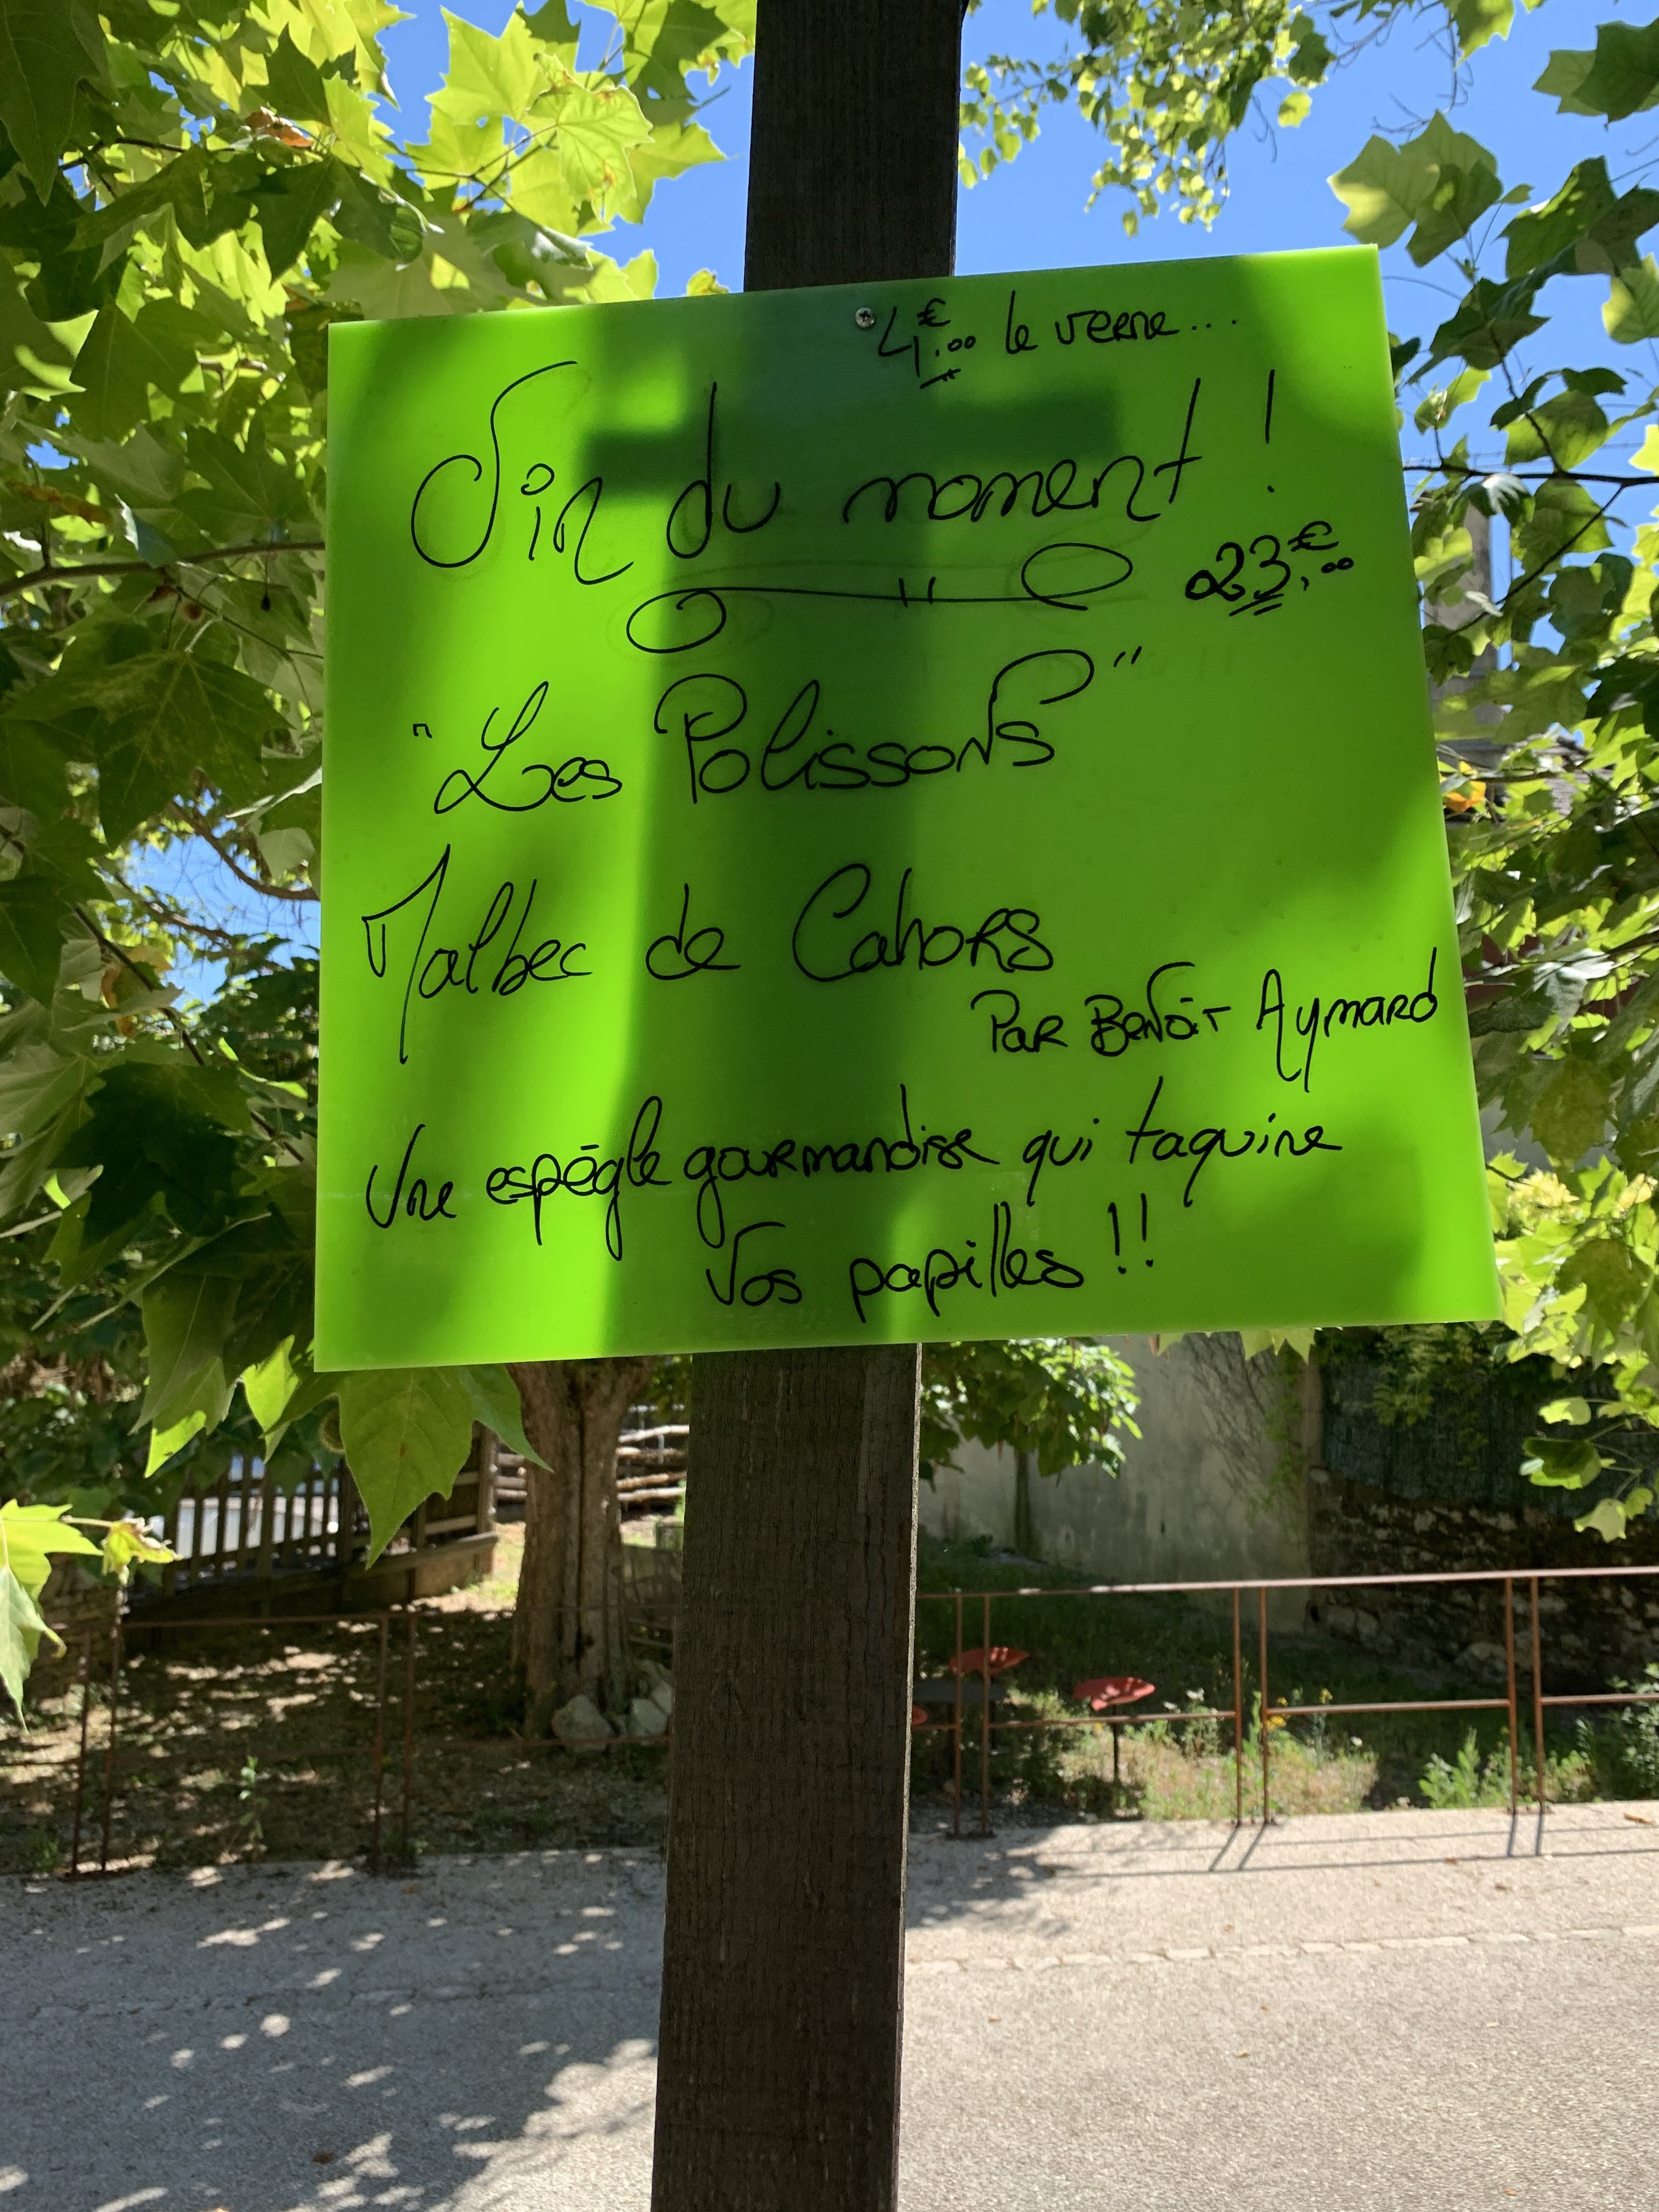 4€.00 le verre...
Vin du moment !
23€.00
"Les Polissons"
Malbec de Cahors
Par Benoît Aymard
Une espiègle gourmandise qui taquine
Vos papilles !!